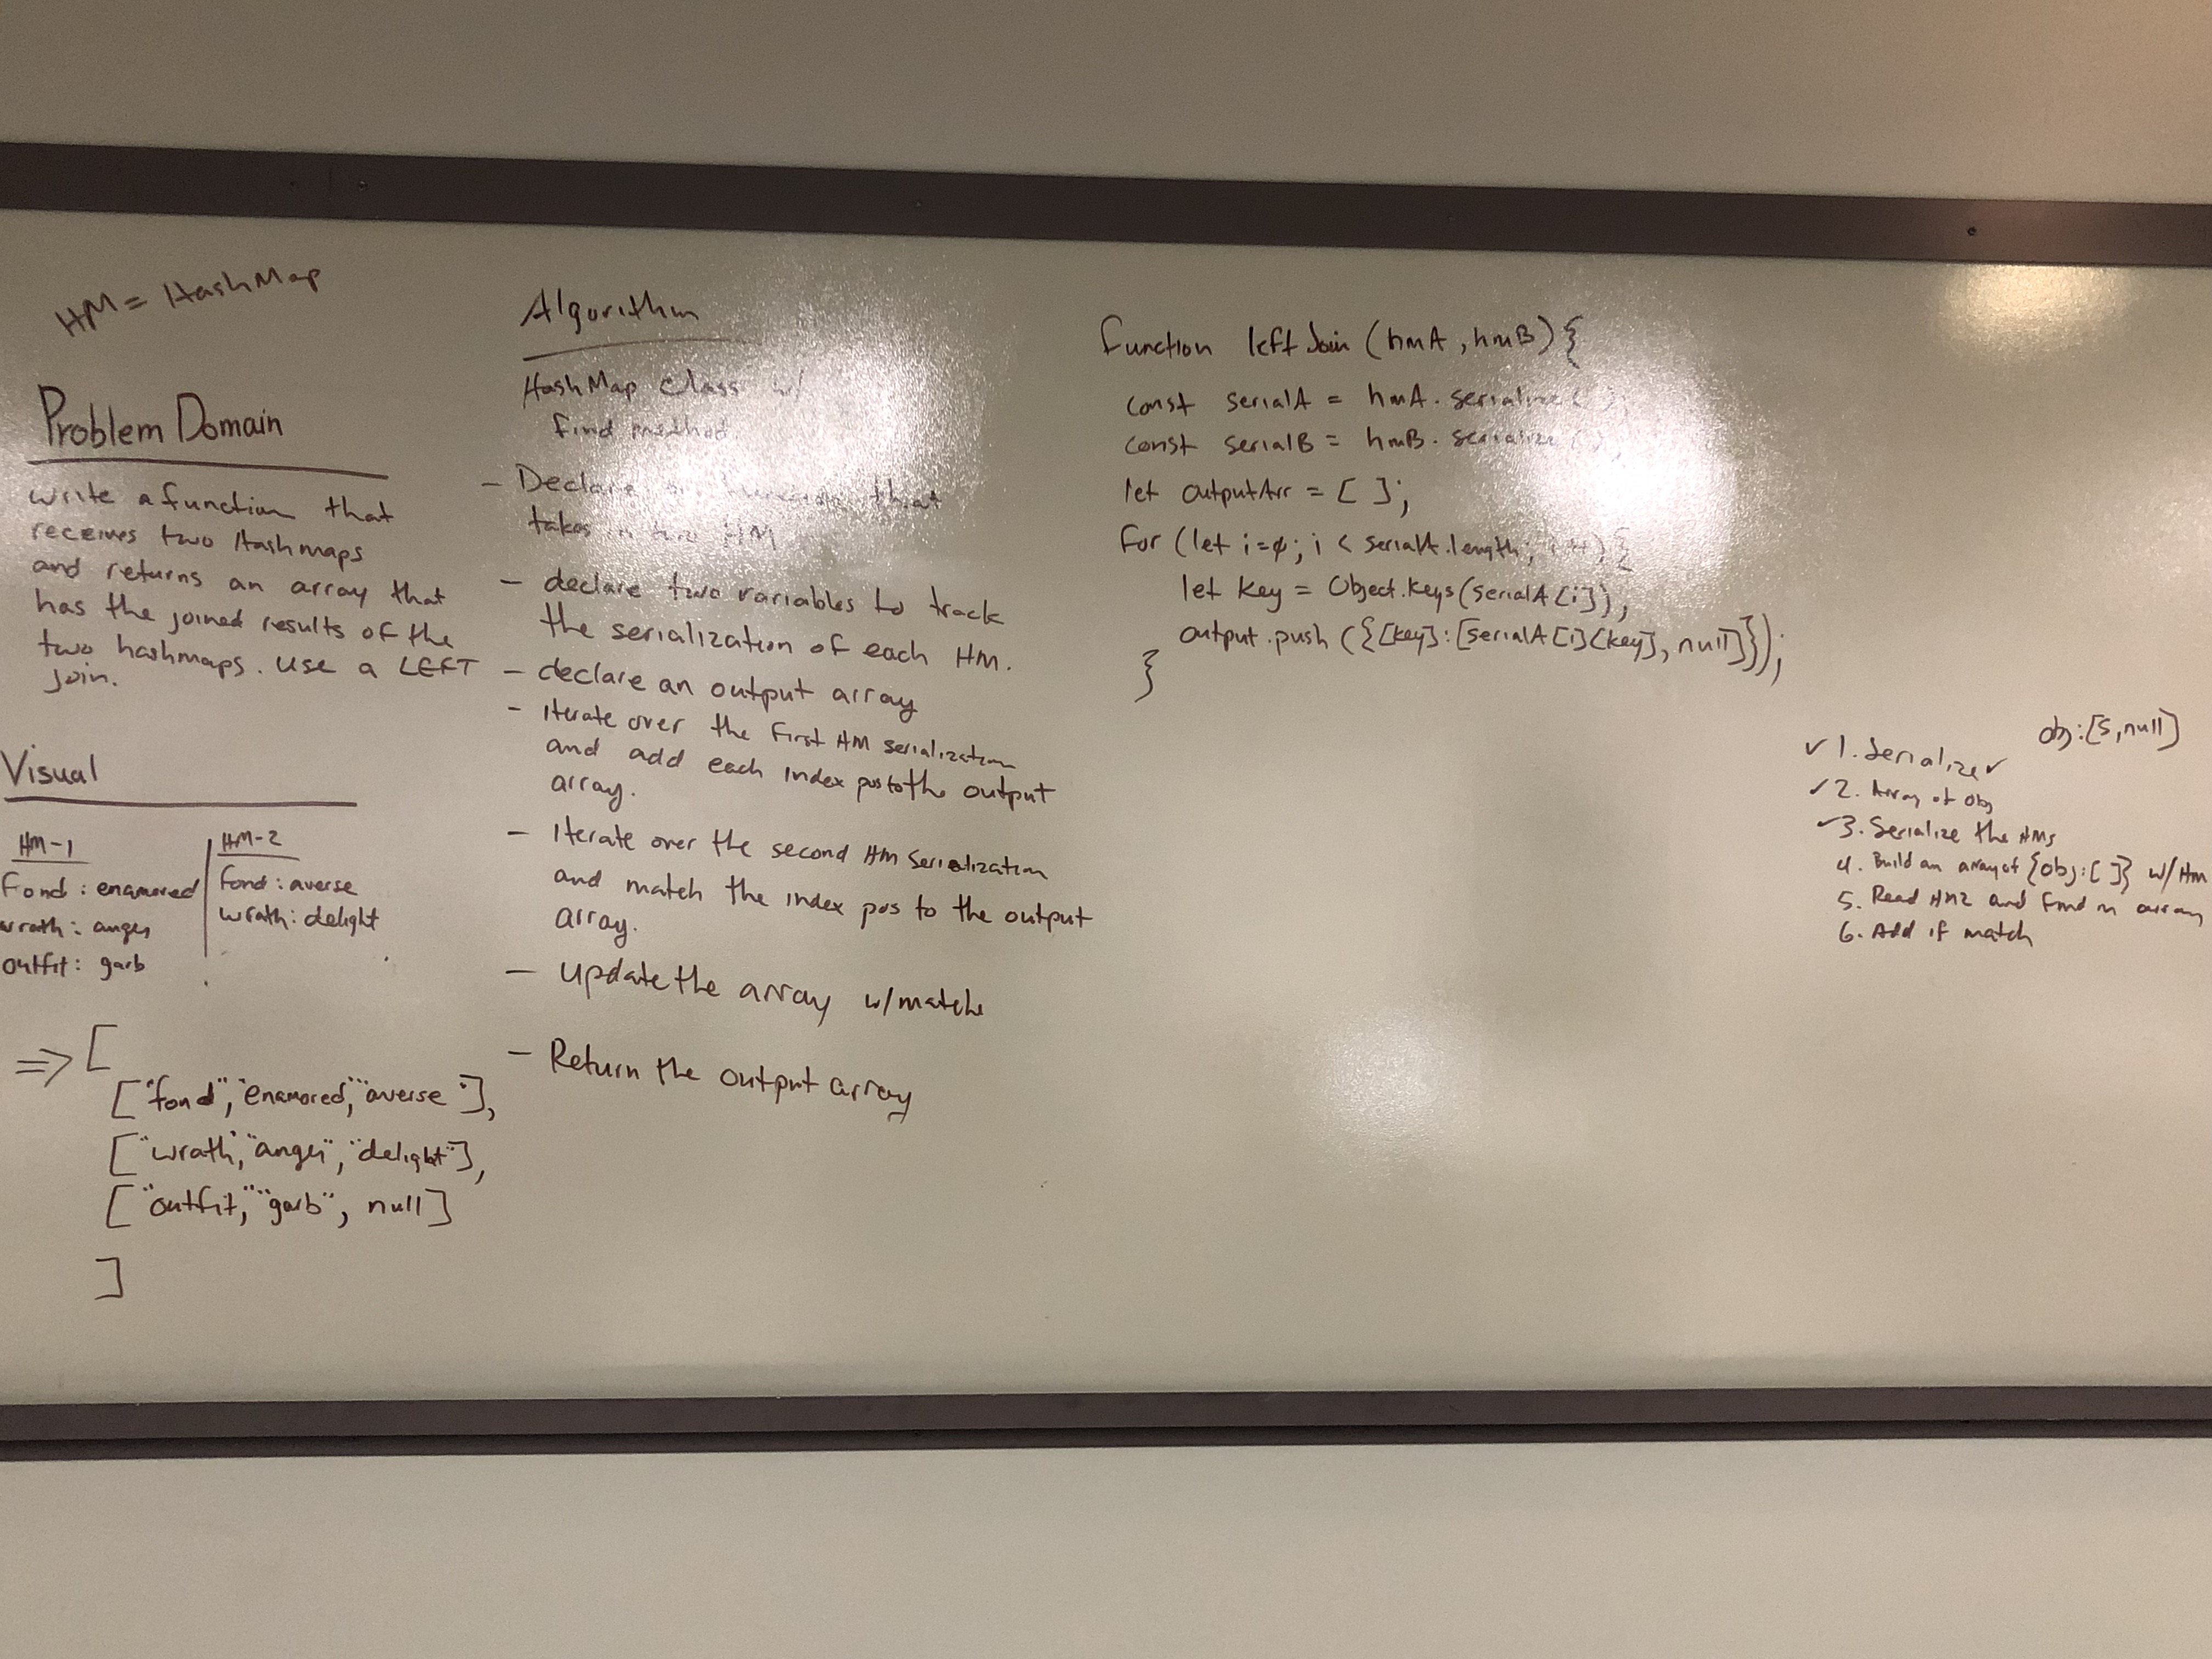 HM = HashMap
Problem Domain
write a function that
receives two Hashmaps
and returns an array that
has the joined results of the
two hashmaps. Use a LEFT
join.
Visual
HM-1
Fond : enamored
wrath : anger
outfit : garb
HM-2
fond : averse
wrath : delight
=> [
["fond", "enamored", "averse"],
["wrath", "anger", "delight"],
["outfit", "garb", null]
]
Algorithm
HashMap Class w/
find method
- Declare a function that
takes in two HM
- declare two variables to track
the serialization of each HM.
- declare an output array
- Iterate over the first HM serialization
and add each index pos to the output
array.
- Iterate over the second HM Serialization
and match the index pos to the output
array.
- update the array w/ matche
- Return the output array
function leftJoin (hmA, hmB) {
const serialA = hmA.serialize();
const serialB = hmB.serialize();
let outputArr = [ ];
for (let i=0; i < serialA.length; i++) {
let key = Object.keys(serialA[i]);
output.push ({[key]:[serialA[i][key], null]});
}
obj:[5,null]
✓ 1. Serialize ✓
✓ 2. Array of Obj
✓ 3. Serialize the HMs
4. Build an array of {obj:[ ]} w/ Hm
5. Read HM2 and find in array
6. Add if match